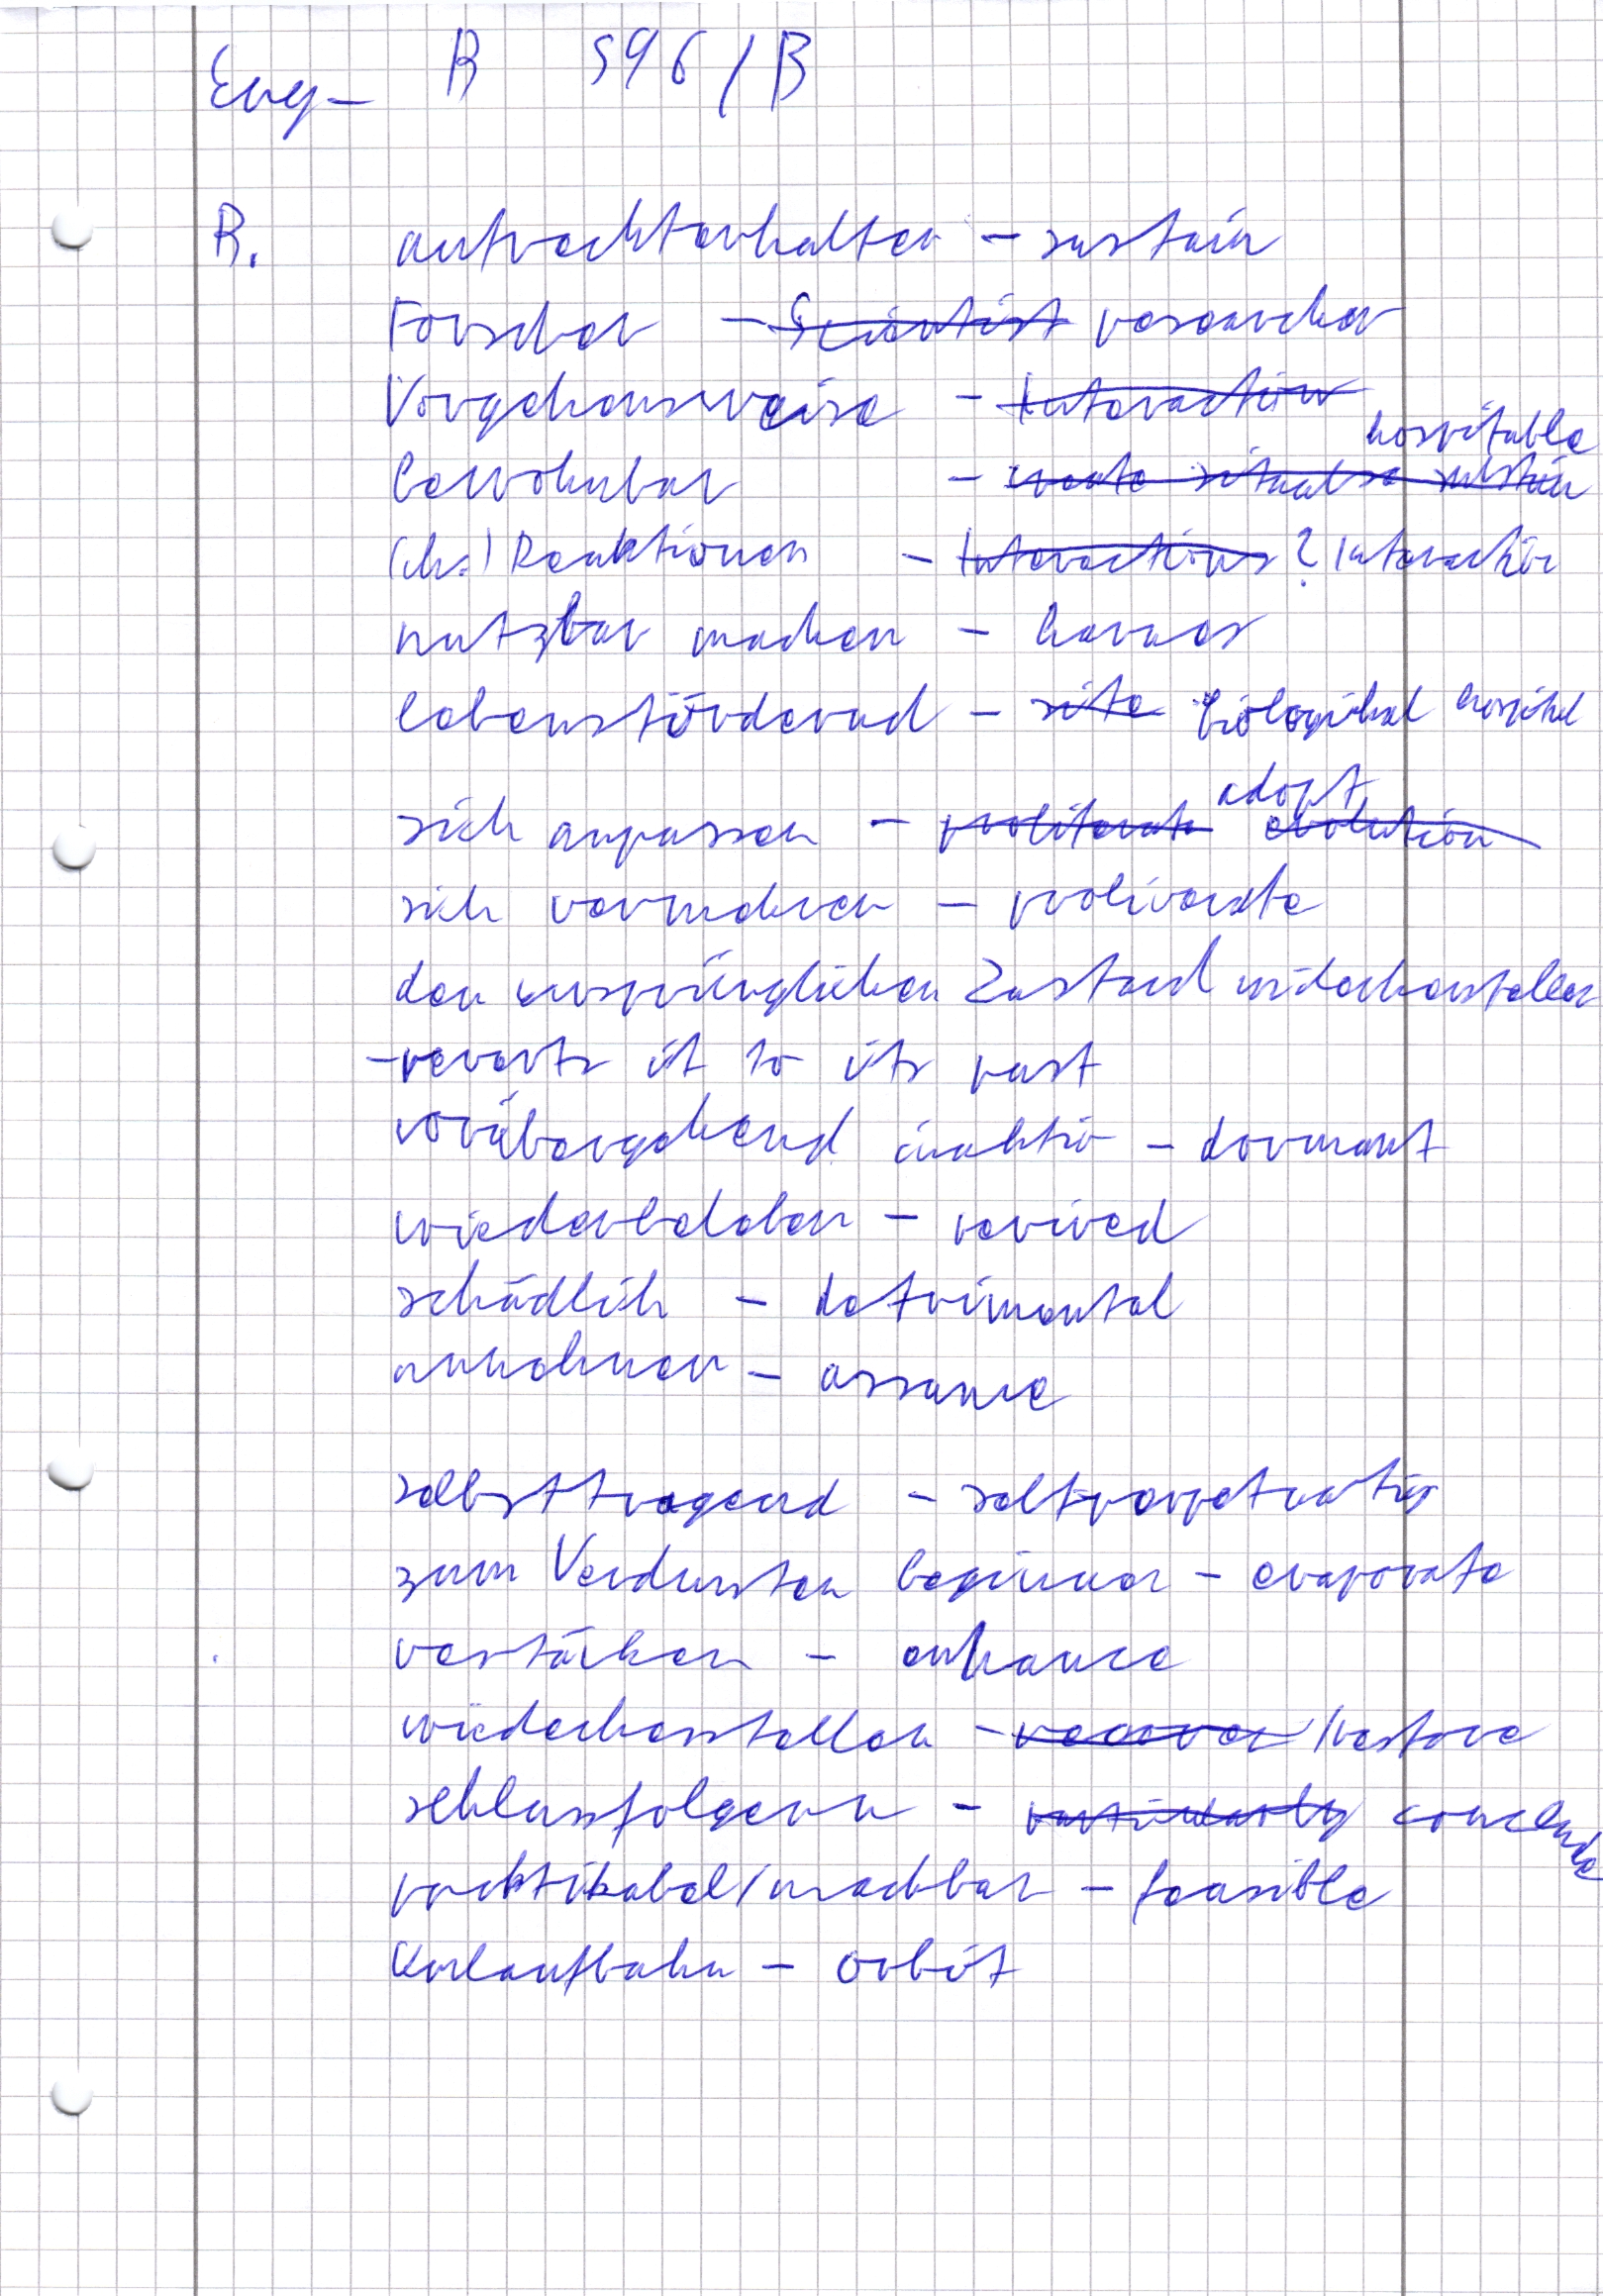 Eng- B S96/B
B. aufrechterhalten - sustain
Forscher - Scientist researcher
Vorgehensweise - Interaction
hospitable
bewohnbar -
(ch.) Reaktionen - Interactions? Interaction
nutzbar machen - harness
lebensfördernd - site biological
adopt
sich anpassen - proliferate evolution
sich vermehren - proliverate
den ursprünglichen Zustand widerherstellen
- reverts it to its past
vorübergehend inaktiv - dormant
wiederbeleben - revived
schädlich - detrimental
annehmen - assume
selbsttragend - selfperpetuating
zum Verdunsten beginnen - evaporate
verstärken - enhance
wiederherstellen - recover /restore
schlussfolgern - particularly conclude
praktikabel/machbar - feasible
Umlaufbahn - orbit